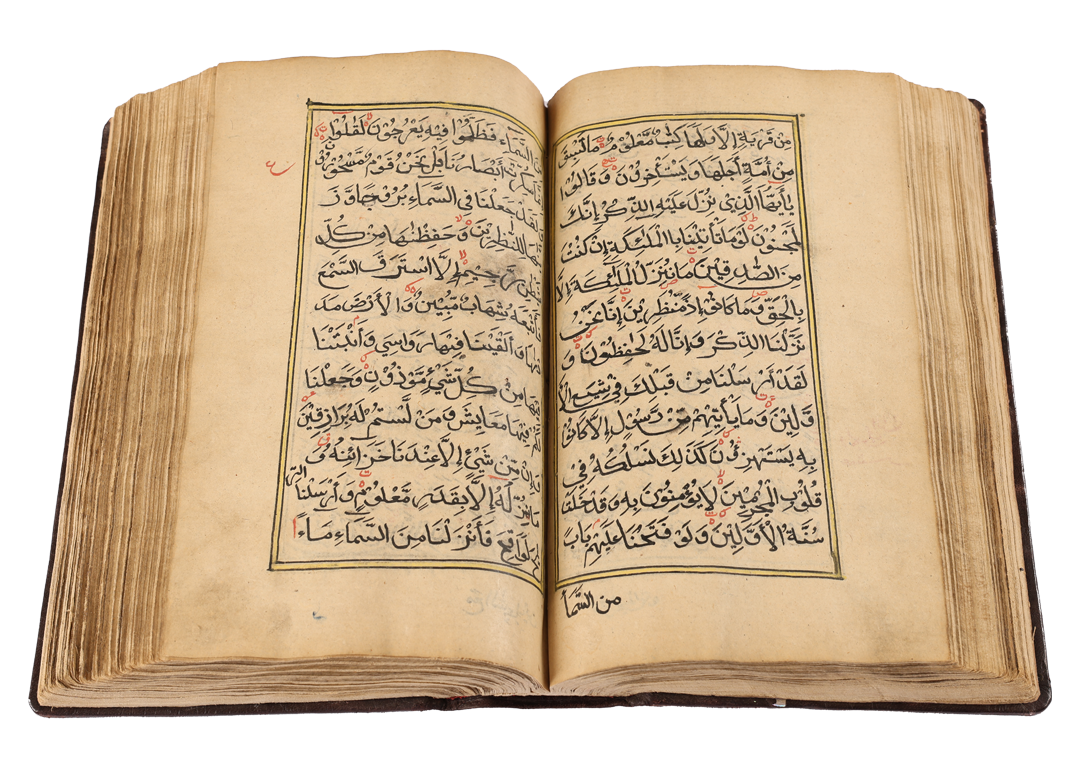 مِنْ قَرْيَةٍ إِلَّا وَلَهَا كِتَٰبٌ مَّعْلُوْمٌ مَا تَسْبِقُ
مِنْ أُمَّةٍ أَجَلَهَا وَيَسْتَأْخِرُوْنَ وَقَالُوْا
يٰأَيُّهَا الَّذِيْ نُزِّلَ عَلَيْهِ الذِّكْرُ إِنَّكَ
لَمَجْنُوْنٌ لَوْمَا تَأْتِيْنَا بِالْمَلٰئِكَةِ إِنْ كُنْتَ
مِنَ الصّٰدِقِيْنَ مَا نُنَزِّلُ الْمَلٰئِكَةَ إِلَّا
بِالْحَقِّ وَمَا كَانُوْا إِذًا مُّنْظَرِيْنَ إِنَّا نَحْنُ
نَزَّلْنَا الذِّكْرَ وَإِنَّا لَهُ لَحٰفِظُوْنَ وَ
لَقَدْ أَرْسَلْنَا مِنْ قَبْلِكَ فِيْ شِيَعِ الْأَ
وَّلِيْنَ وَمَا يَأْتِيْهِمْ مِنْ رَسُوْلٍ إِلَّا كَانُوْا
بِهِ يَسْتَهْزِءُوْنَ كَذٰلِكَ نَسْلُكُهُ فِيْ
قُلُوْبِ الْمُجْرِمِيْنَ لَا يُؤْمِنُوْنَ بِهِ وَقَدْ خَلَتْ
سُنَّةُ الْأَوَّلِيْنَ وَلَوْ فَتَحْنَا عَلَيْهِمْ بَابًا
مِنَ السَّمَآ
السَّمَاءِ فَظَلُّوْا فِيْهِ يَعْرُجُوْنَ لَقَالُوْا
سُكِّرَتْ أَبْصَارُنَا بَلْ نَحْنُ قَوْمٌ مَّسْحُوْرُوْنَ
لَقَدْ جَعَلْنَا فِي السَّمَاءِ بُرُوْجًا وَّزَ
لِلنّٰظِرِيْنَ وَحَفِظْنٰهَا مِنْ كُلِّ
رَّجِيْمٍ إِلَّا مَنِ اسْتَرَقَ السَّمْعَ
فَأَتْبَعَهُ شِهَابٌ مُّبِيْنٌ وَالْأَرْضَ مَدَ
وَأَلْقَيْنَا فِيْهَا رَوَاسِيَ وَأَنْبَتْنَا
مِنْ كُلِّ شَيْءٍ مَّوْزُوْنٍ وَجَعَلْنَا
فِيْهَا مَعَايِشَ وَمَنْ لَّسْتُمْ لَهُ بِرَازِقِيْنَ
وَإِنْ مِّنْ شَيْءٍ إِلَّا عِنْدَنَا خَزَائِنُهُ وَ
لُهُ إِلَّا بِقَدَرٍ مَّعْلُوْمٍ وَأَرْسَلْنَا الرِّ
لَوَاقِحَ فَأَنْزَلْنَا مِنَ السَّمَاءِ مَاءً